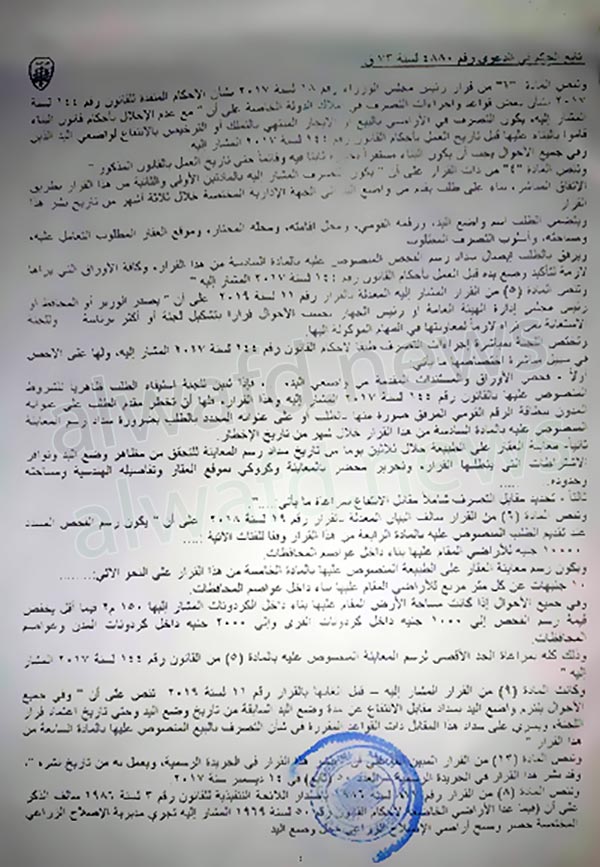 تابع الحكم في الدعوى رقم ٤٨٨٠ لسنة ٧٣ ق
وتنص المادة "٦" من قرار رئيس مجلس الوزراء رقم ١٨ لسنة ٢٠١٧ بشأن الأحكام المنفذة للقانون رقم ١٤٤ لسنة
٢٠١٧ بشأن بعض قواعد وإجراءات التصرف في أملاك الدولة الخاصة على أن " مع عدم الإخلال بأحكام قانون البناء
المشار إليه، يكون التصرف في الأراضي بالبيع أو الإيجار المنتهي بالتملك أو الترخيص بالانتفاع لواضعي اليد الذين
قاموا بالبناء عليها قبل تاريخ العمل بأحكام القانون رقم ١٤٤ لسنة ٢٠١٧ المشار إليه
وفي جميع الأحوال يجب أن يكون البناء مستقراً بحيزه ثابتاً فيه وقائماً حتى تاريخ العمل بالقانون المذكور "
وتنص المادة "٤" من ذات القرار على أن " يكون التصرف المشار إليه بالمادتين الأولى والثانية من هذا القرار بطريق
الاتفاق المباشر، بناء على طلب يقدم من واضع اليد إلى الجهة الإدارية المختصة خلال ثلاثة أشهر من تاريخ نشر هذا
القرار
ويتضمن الطلب اسم واضع اليد، ورقمه القومي، ومحل إقامته، ومحله المختار، وموقع العقار المطلوب التعامل عليه،
ومساحته، وأسلوب التصرف المطلوب
ويرفق بالطلب إيصال سداد رسم الفحص المنصوص عليه بالمادة السادسة من هذا القرار، وكافة الأوراق التي يراها
لازمة لتأكيد وضع يده قبل العمل بأحكام القانون رقم ١٤٤ لسنة ٢٠١٧ المشار إليه "
وتنص المادة (٥) من القرار المشار إليه المعدلة بالقرار رقم ١١ لسنة ٢٠١٩ على أن " يصدر الوزير أو المحافظ أو
رئيس مجلس إدارة الهيئة العامة أو رئيس الجهاز بحسب الأحوال قراراً بتشكيل لجنة أو أكثر برئاسة وللجنة
الاستعانة بمن تراه لازماً لمعاونتها في المهام الموكولة إليها.
وتختص اللجنة بمباشرة إجراءات التصرف طبقاً لأحكام القانون رقم ١٤٤ لسنة ٢٠١٧ المشار إليه، ولها على الأخص
في سبيل مباشرة اختصاصها ما يأتي
أولاً - فحص الأوراق والمستندات المقدمة من واضعي اليد، فإذا تبين للجنة استيفاء الطلب ظاهرياً للشروط
المنصوص عليها بالقانون رقم ١٤٤ لسنة ٢٠١٧ المشار إليه وهذا القرار، فلها أن تخطر مقدم الطلب على عنوانه
المدون ببطاقة الرقم القومي المرفق صورة منها بالطلب أو على عنوانه المحدد بالطلب بضرورة سداد رسم المعاينة
المنصوص عليه بالمادة السادسة من هذا القرار خلال شهر من تاريخ الإخطار.
ثانياً معاينة العقار على الطبيعة خلال ثلاثين يوماً من تاريخ سداد رسم المعاينة للتحقق من مظاهر وضع اليد وتوافر
الاشتراطات التي يتطلبها القرار، وتحرير محضر بالمعاينة وكروكي بموقع العقار وتفاصيله الهندسية ومساحته
وحدوده.
ثالثاً - تحديد مقابل التصرف شاملاً مقابل الانتفاع بمراعاة ما يأتي....."
وتنص المادة (٦) من القرار سالف البيان المعدلة بالقرار رقم ١٩ لسنة ٢٠١٨ على أن " يكون رسم الفحص المسدد
عند تقديم الطلب المنصوص عليه بالمادة الرابعة من هذا القرار وفقاً للفئات الآتية :....
١٠٠٠٠ جنيه للأراضي المقام عليها بناء داخل عواصم المحافظات.
ويكون رسم معاينة العقار على الطبيعة المنصوص عليها بالمادة الخامسة من هذا القرار على النحو الآتي:......
١٠ جنيهات عن كل متر مربع للأراضي المقام عليها بناء داخل عواصم المحافظات.
وفي جميع الأحوال إذا كانت مساحة الأرض المقام عليها بناء داخل الكردونات المشار إليها ١٥٠ م٢ فيما أقل يخفض
قيمة رسم الفحص إلى ١٠٠٠ جنيه داخل كردونات القرى وإلى ٢٠٠٠ جنيه داخل كردونات المدن وعواصم
المحافظات.
وذلك كله بمراعاة الحد الأقصى لرسم المعاينة المنصوص عليه بالمادة (٥) من القانون رقم ١٤٤ لسنة ٢٠١٧ المشار
إليه "
وكانت المادة (٩) من القرار المشار إليه - قبل إلغائها بالقرار رقم ١١ لسنة ٢٠١٩ تنص على أن " وفي جميع
الأحوال يلتزم واضع اليد بسداد مقابل الانتفاع عن مدة وضع اليد السابقة من تاريخ وضع اليد وحتى تاريخ اعتماد قرار
اللجنة، ويسري على سداد هذا المقابل ذات القواعد المقررة في شأن التصرف بالبيع المنصوص عليها بالمادة السابعة من
هذا القرار "
وتنص المادة (١٣) من القرار المبين على أن " ينشر هذا القرار في الجريدة الرسمية، ويعمل به من تاريخ نشره ".
وقد نشر هذا القرار في الجريدة الرسمية بالعدد ٥٠ (تابع) في ١٤ ديسمبر سنة ٢٠١٧
وتنص المادة (٨) من القرار رقم لسنة ١٩٨٦ بإصدار اللائحة التنفيذية للقانون رقم ٣ لسنة ١٩٨٦ سالف الذكر
على أن (فيما عدا الأراضي الخاضعة لأحكام القانون رقم ٥٠ لسنة ١٩٦٩ المشار إليه تجري مديرية الإصلاح الزراعي
المختصة حصر ومسح أراضي الإصلاح الزراعي محل وضع اليد
alwafd.news
alwafd.news